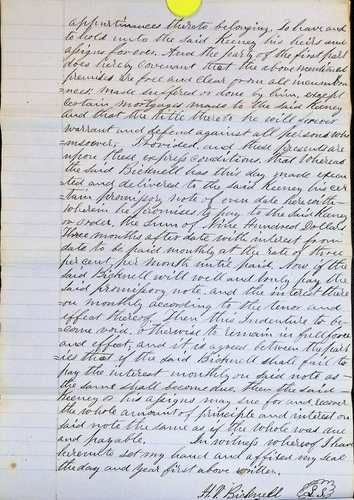 appurtinances thereto belonging. To have and
to hold unto the said Keeney his heirs and
assigns forever. And the party of the first part
does hereby covenant that the above mentioned
premises are free and clear from all incumbran
=ces made suffered or done by him except
certain mortgages made to the said Keeney
and that the title thereto he will forever
warrant and defend against all persons who
=msoever, Provided, and these presents are
upon these express conditions, that Whereas
the said Bicknell has this day made execu
=ted and delivered to the said Keeney his cer
=tain promissory note of even date herewith
wherein he promises to pay to the said Keeney
or order, the sum of Nine Hundred Dollars
three months after date with interest from
date to be paid monthly at the rate of three
per cent per month until paid. Now if the
said Bicknell will well and truly pay the
said promissory note, and the interest there
=on monthly according to the tenor and
effect thereof. Then this Indenture to be-
=come void. Otherwise to remain in full force
and effect, and it is agreed between the part
=ies that if the said Bicknell shall fail to
pay the interest monthly on said note as
the same shall become due. then the said
Keeney or his assigns may sue for and recover
the whole amount of principle and interest on
said note the same as if the whole was due
and payable. In witness whereof I have
hereunto set my hand and affixed my seal
the day and year first above written.
Bicknell